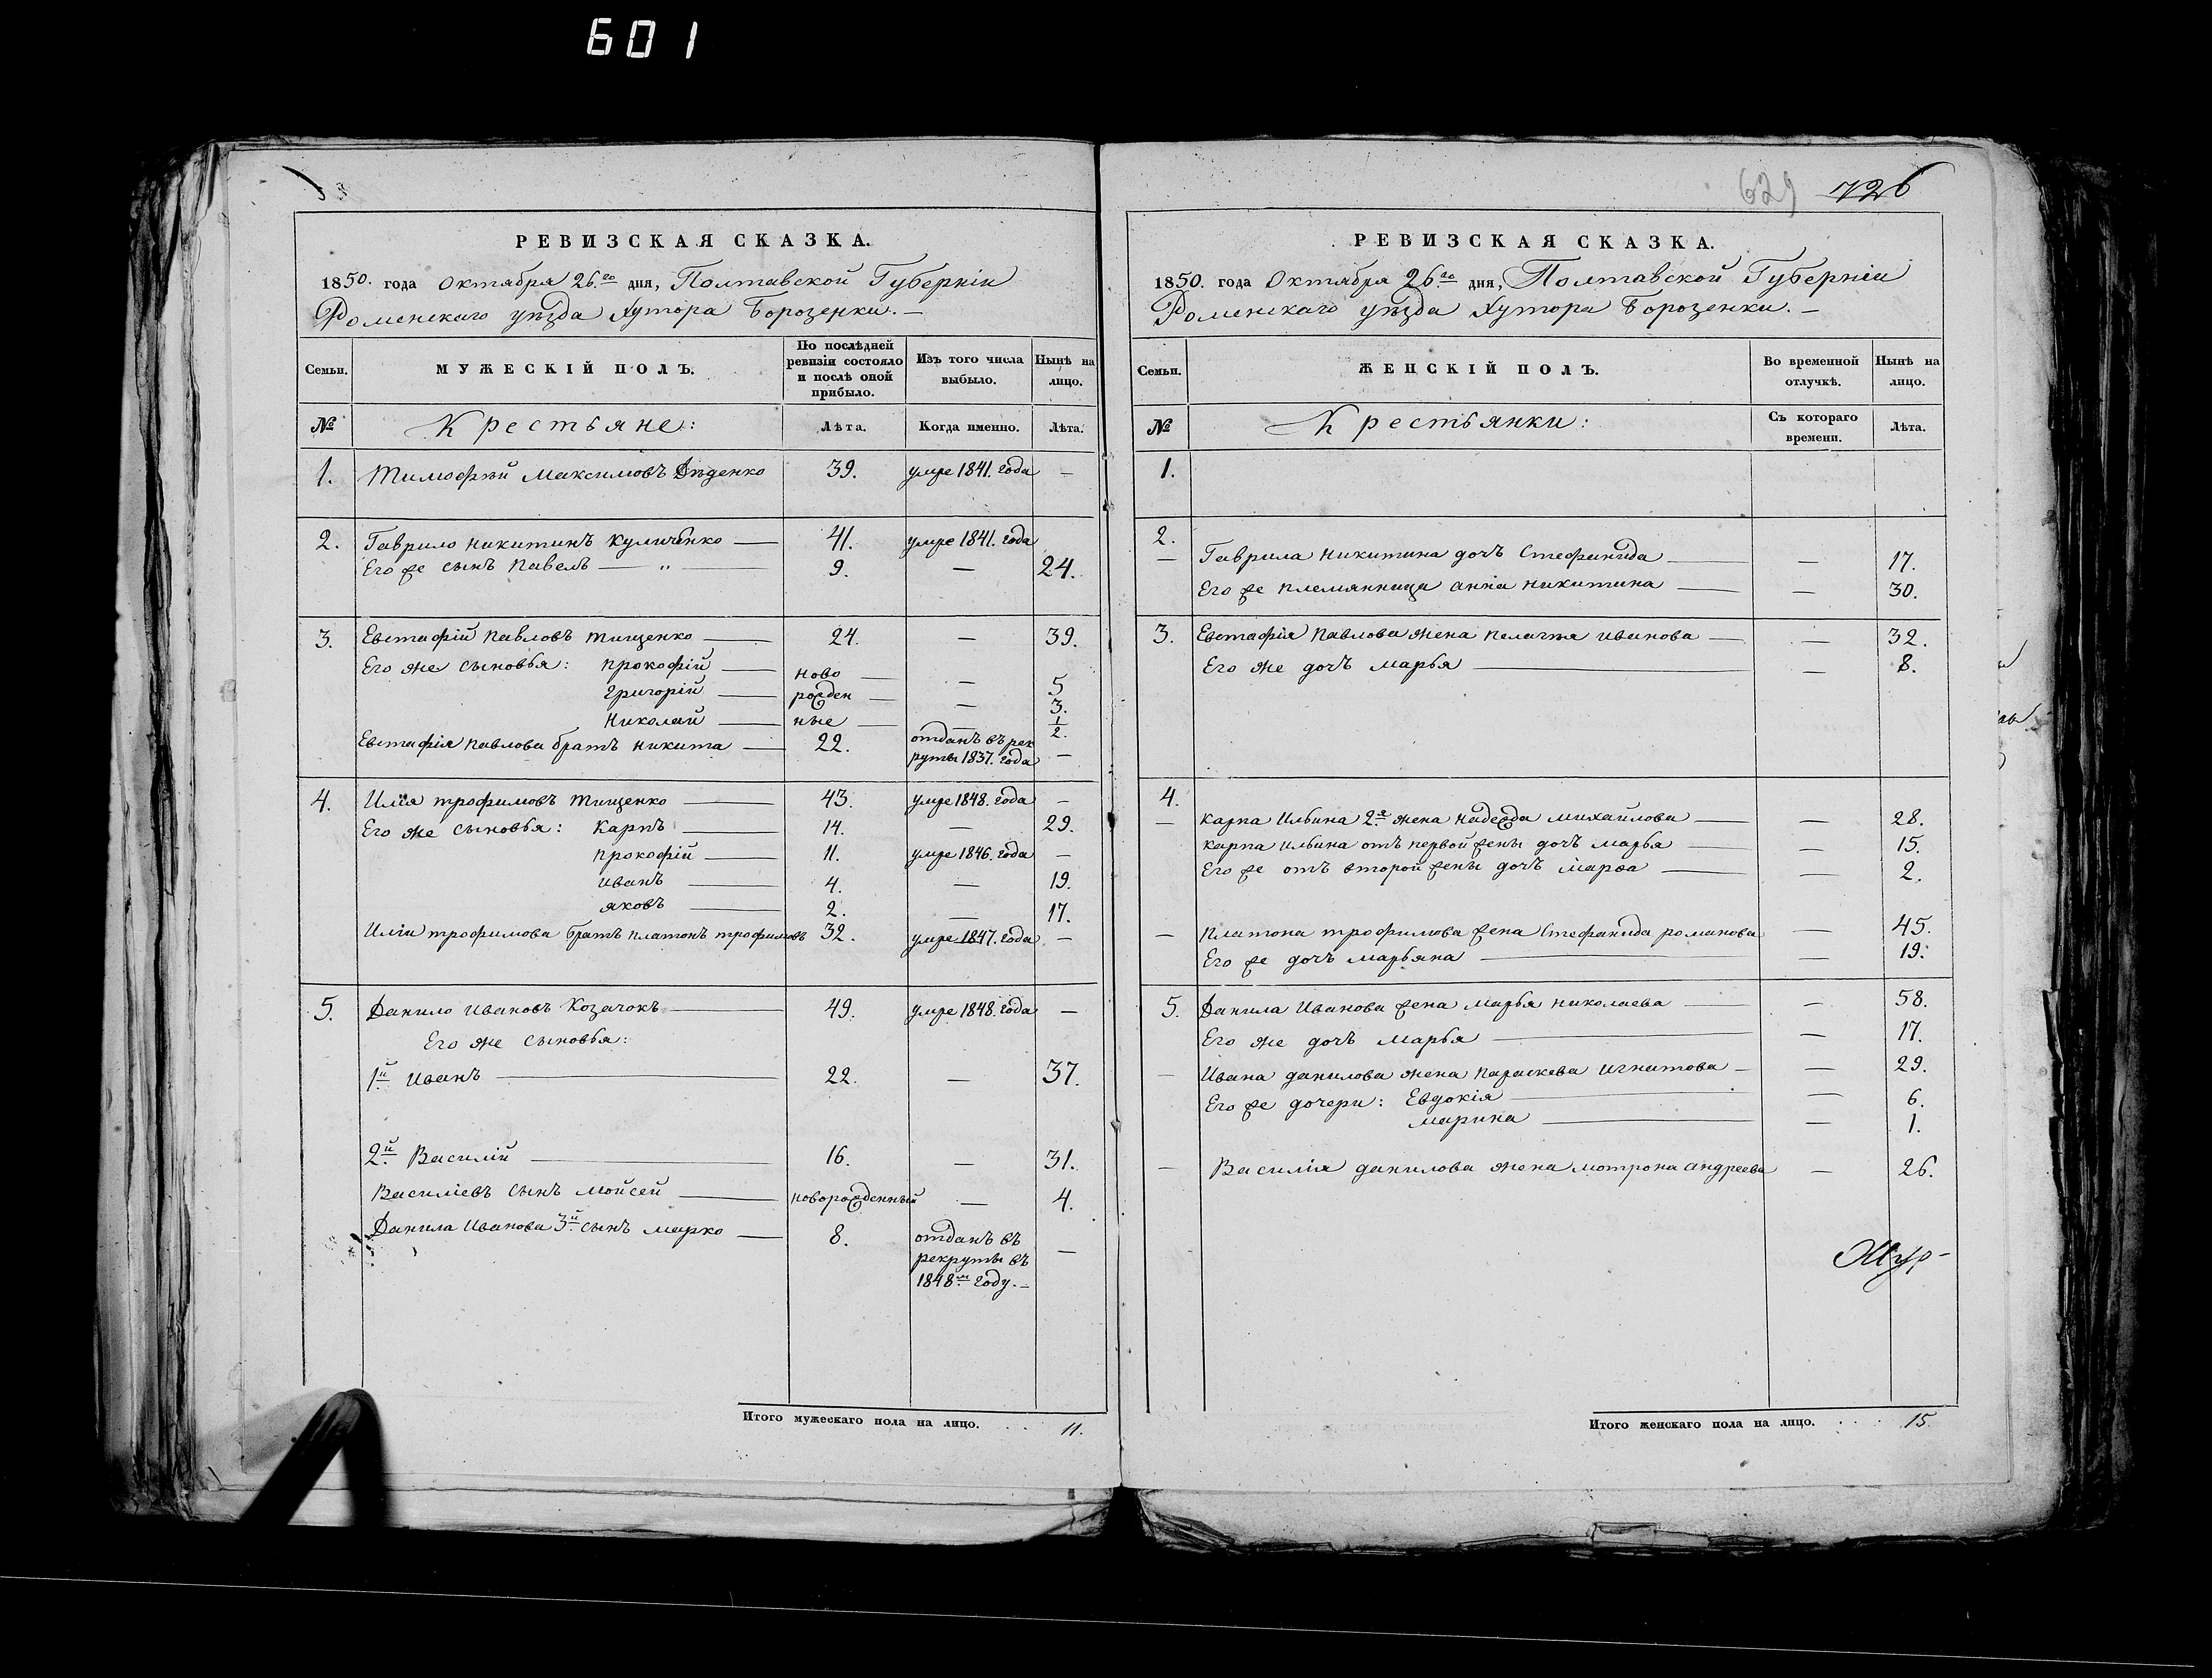 601
РЕВИЗСКАЯ СКАЗКА.
1850. года Октября 26.го дня, Полтавской Губерніи
Роменскаго уѣзда Хутора Борозенки. —
Семьи. МУЖЕСКІЙ ПОЛЪ. По послѣдней ревизіи состояло и послѣ оной прибыло. Изъ того числа выбыло. Нынѣ на лицо.
№ Крестьяне: Лѣта. Когда именно. Лѣта.
1. Тимофѣй Максимовъ Дѣденко 39. умре 1841. года —
2. Гаврило Никитинъ Куличенко — 41. умре 1841. года
Его же сынъ Павелъ — „ — 9. — 24.
3. Евстафій Павловъ Тищенко — 24. — 39.
Его же сыновья: Прокофій — ново — — 5
Григорій — рожден — — 3.
Николай — ные — — 1/2.
Евстафія Павлова братъ Никита — 22. отданъ въ рек
руты 1837. года —
4. Илія Трофимовъ Тищенко — 43. умре 1848. года —
Его же сыновья: Карпъ — 14. — 29.
Прокофій — 11. умре 1846. года —
Иванъ — 4. — 19.
Яковъ — 2. — 17.
Иліи Трофимова братъ Платонъ Трофимовъ 32. умре 1847. года —
5. Данило Ивановъ Козачокъ — 49. умре 1848. года —
Его же сыновья:
1й Иванъ — 22. — 37.
2й Василій — 16. — 31.
Василіевъ сынъ Мойсей — новорожденный — 4.
Данила Иванова 3й сынъ Марко — 8. отданъ въ —
рекруты въ
1848м году. —
Итого мужескаго пола на лицо. . . 11.
629 726
РЕВИЗСКАЯ СКАЗКА.
1850. года Октября 26.го дня, Полтавской Губерніи
Роменскаго уѣзда Хутора Борозенки. —
Семьи. ЖЕНСКІЙ ПОЛЪ. Во временной отлучкѣ. Нынѣ на лицо.
№ Крестьянки: Съ котораго времени. Лѣта.
1.
2.
— Гаврила Никитина дочь Стефанида — — 17.
Его же племянница Анна Никитина — — 30.
3. Евстафія Павлова жена Пелагея Иванова — — 32.
Его же дочь Марья — — 8.
4.
— Карпа Ильина 2я жена Надежда Михайлова — — 28.
Карпа Ильина отъ первой жены дочь Марья — — 15.
Его же отъ второй жены дочь Марѳа — — 2.
— Платона Трофимова жена Стефанида Романова — 45.
Его же дочь Марьяна — — 19.
5. Данила Иванова жена Марья Николаева — — 58.
Его же дочь Марья — — 17.
— Ивана Данилова жена Параскева Игнатова — — 29.
Его же дочери: Евдокія — — 6.
Марина — — 1.
— Василія Данилова жена Мотрона Андреева — 26.
Итого женскаго пола на лицо. . . . 15.